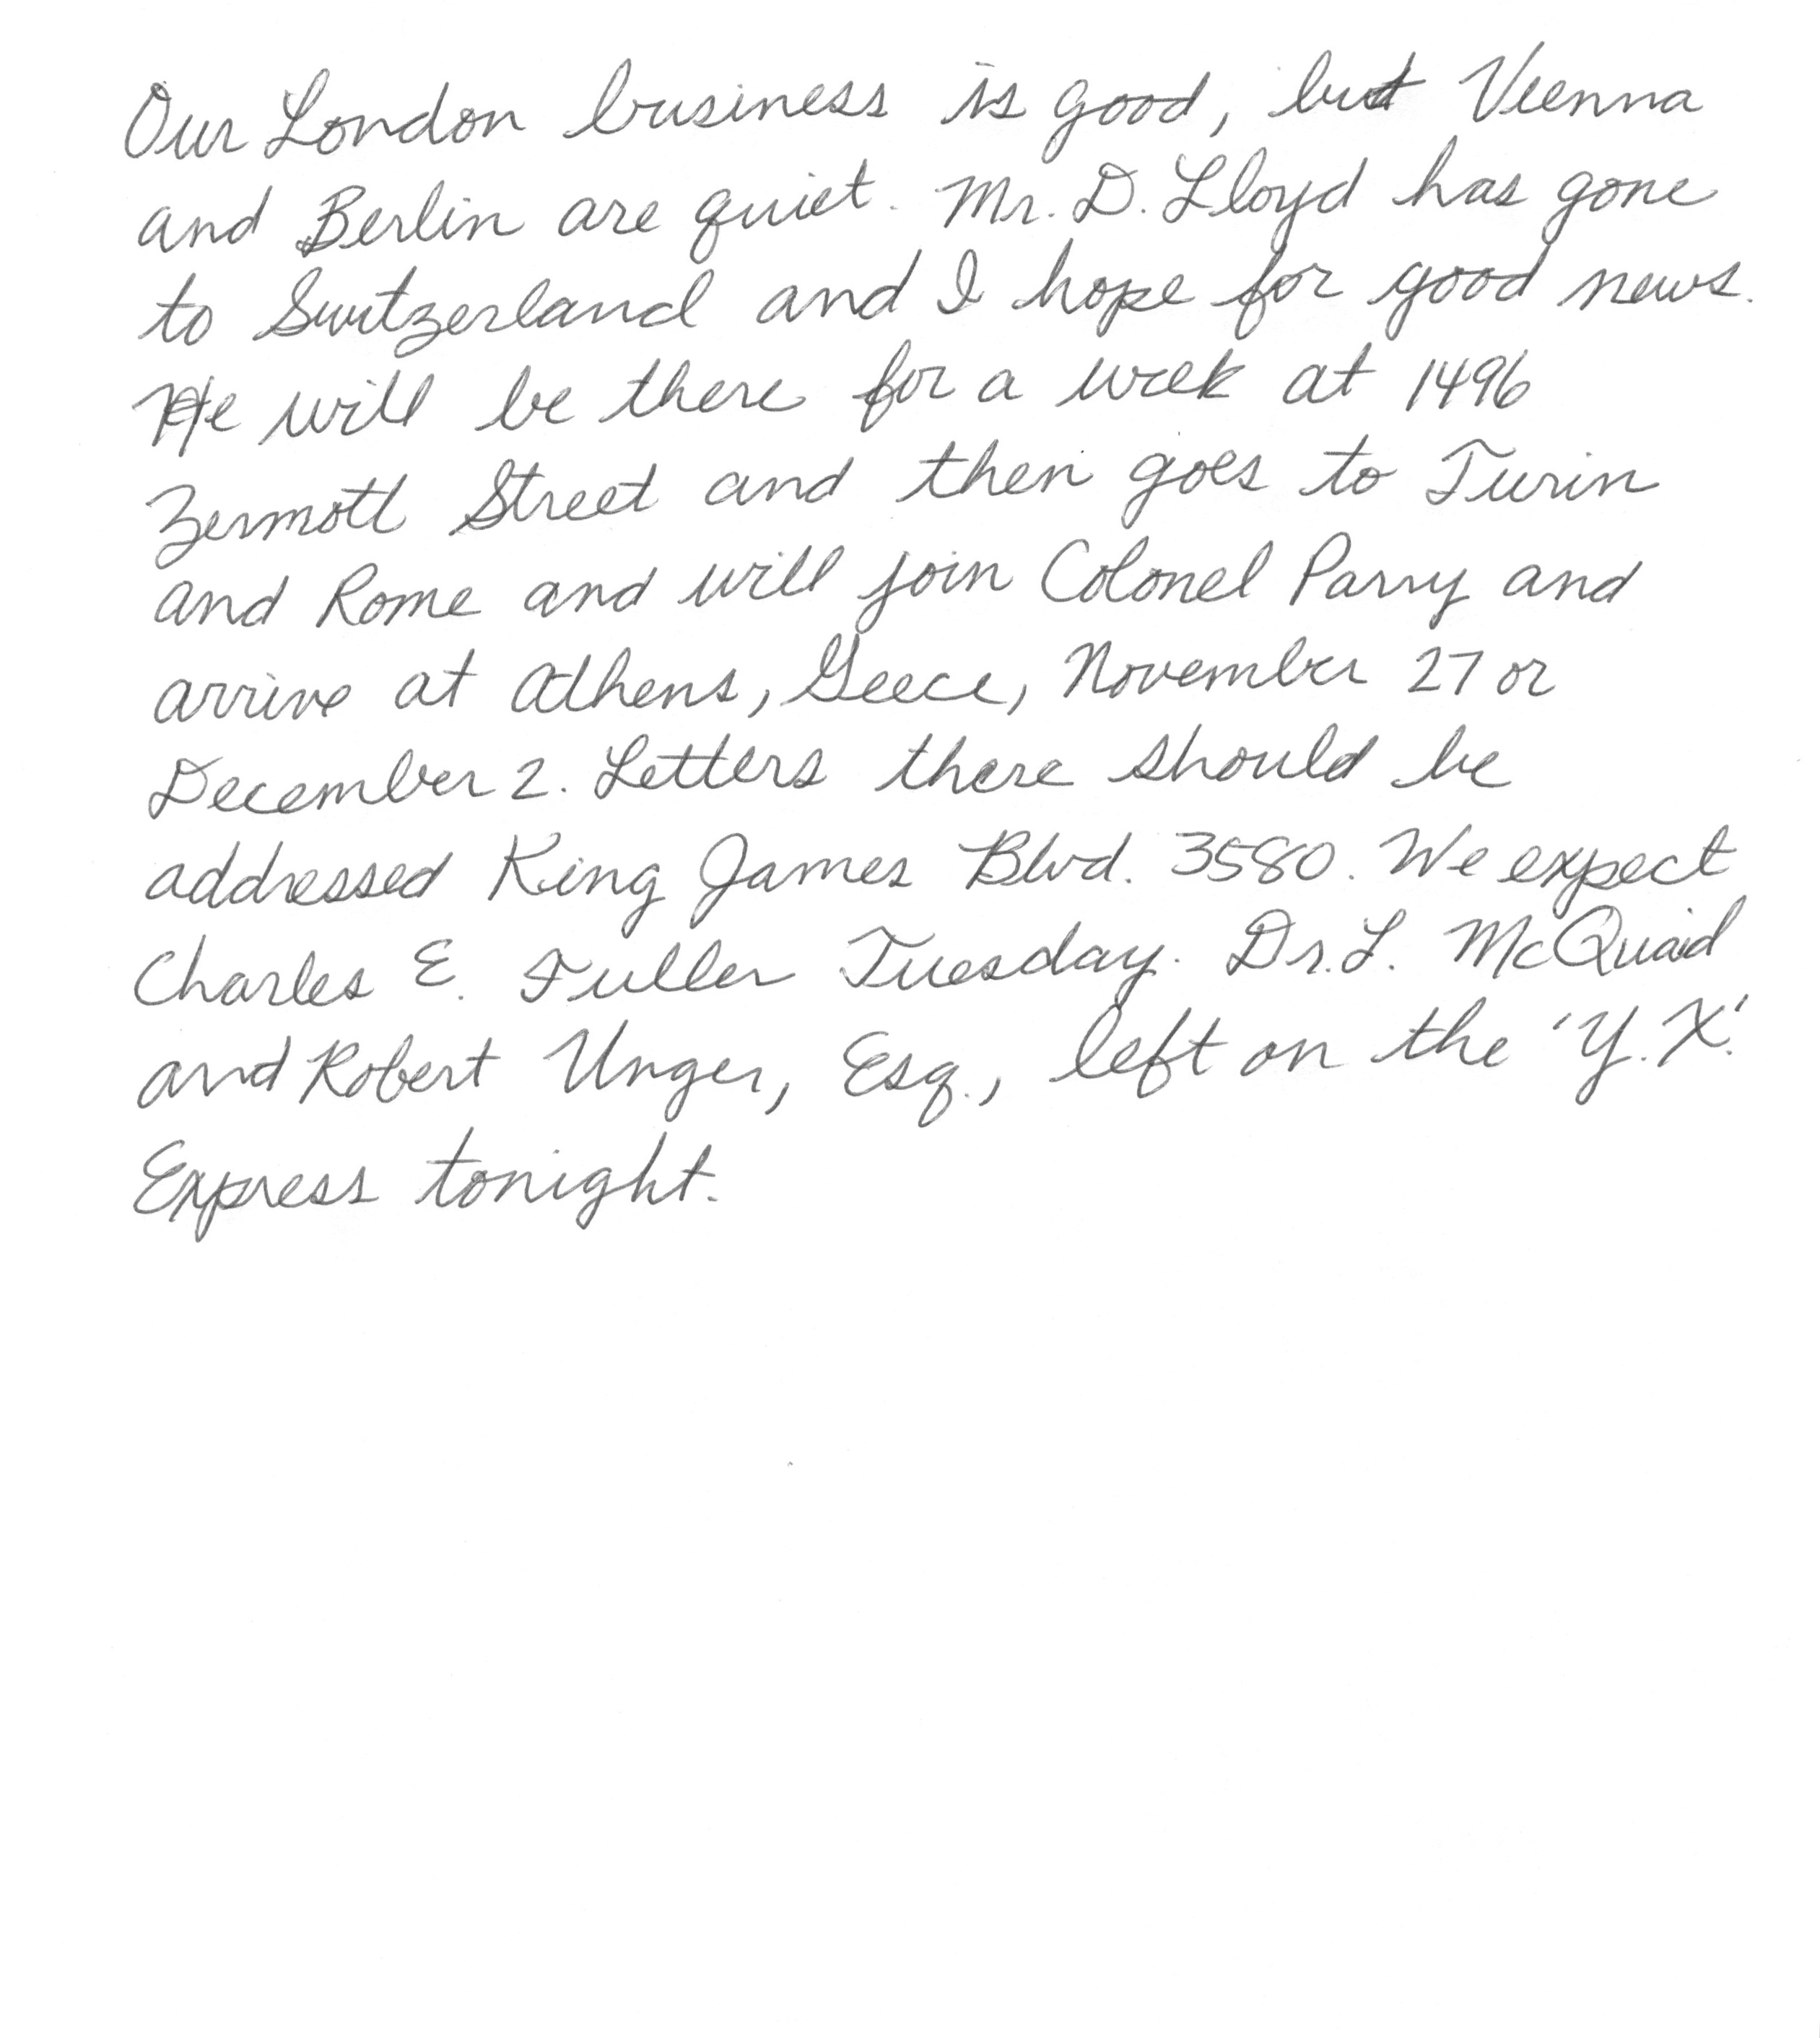 Our London business is good, but Vienna
and Berlin are quiet. Mr. D. Lloyd has gone
to Switzerland and I hope for good news.
He will be there for a week at 1496
Zermott Street and then goes to Turin
and Rome and will join Colonel Parry and
arrive at Athens, Geece, November 27 or
December 2. Letters there should be
addressed King James Blvd. 3580. We expect
Charles E. Fuller Tuesday. Dr. L. McQuaid
and Robert Unger, Esq., left on the 'Y.X.'
Express tonight.